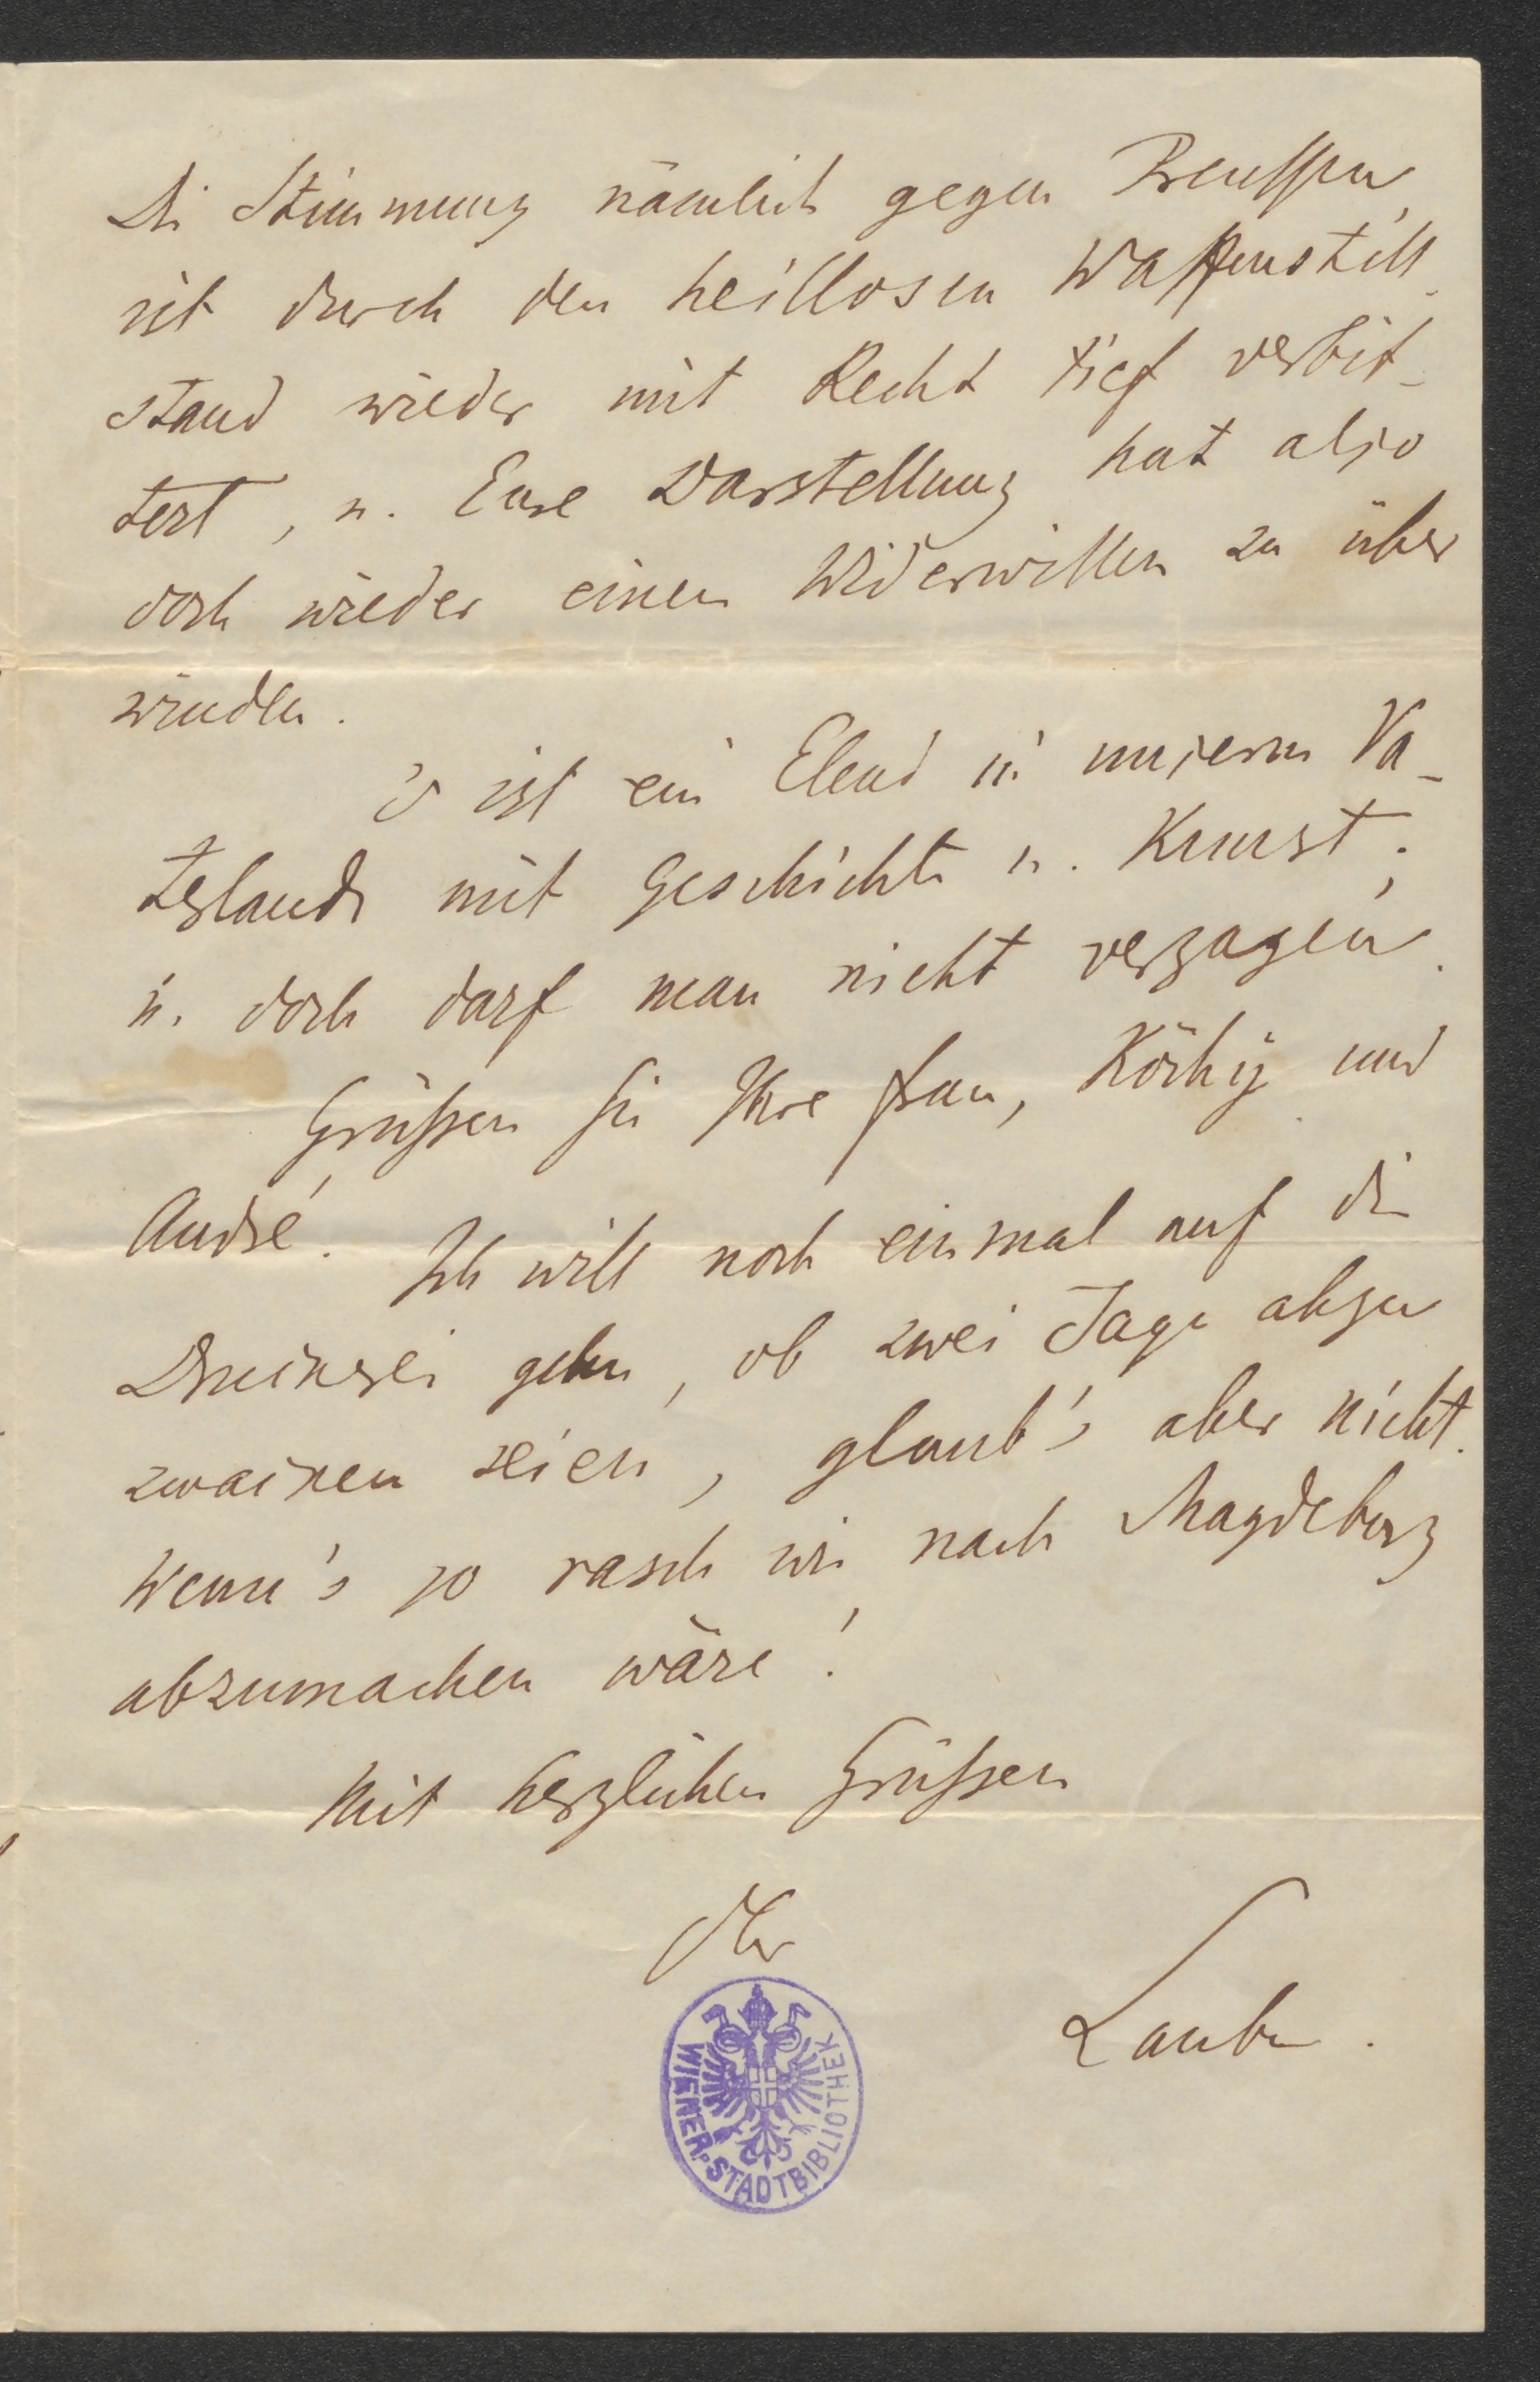 Die Stimmung nämlich gegen Preussen,
ist durch den heillosen Waffenstill-
stand wieder mit Recht tief verbit-
tert, u. Eure Darstellung hat also
doch wieder einen Widerwillen zu über
winden.
's ist ein Elend in unserm Va-
terlande mit Geschichte u. Kunst;
u. doch darf man nicht verzagen.
Grüssen Sie Ihre Frau, Köchy und
André. Ich will noch einmal auf die
Druckerei gehen, ob zwei Tage abzu
zwacken seien, glaub's aber nicht.
Wenn's so rasch wie nach Magdeburg
abzumachen wäre!
Mit herzlichen Grüssen
Ihr
Laube.
WIENER STADTBIBLIOTHEK